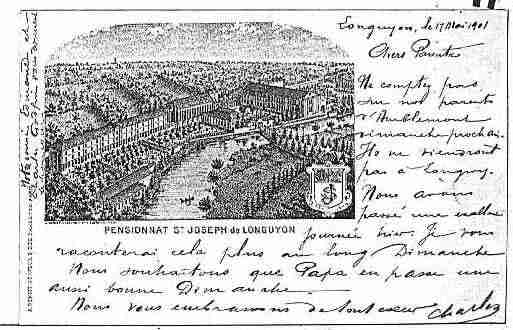 Longuyon, le 17 Mai 1901
Chers Parents
Ne comptez pas
sur nos parents
d'Amblemont
dimanche prochain.
Ils ne viendront
pas à Longuy.
Nous avons
passé une
journée hier. Je vous
raconterai cela plus au long Dimanche
Nous souhaitons que Papa en passe une
aussi bonne Dimanche.
Nous vous embrassons de tout coeur Charles
PENSIONNAT ST JOSEPH de LONGUYON